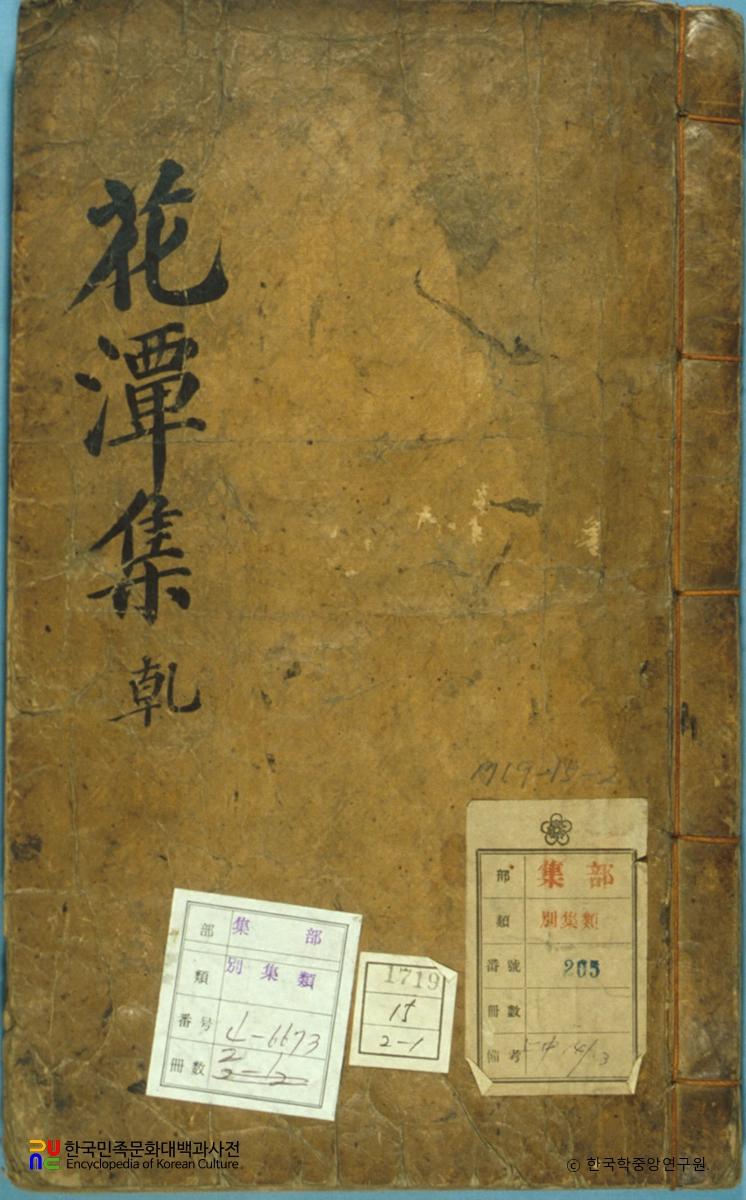 花潭集 乾
1719-15-2
部 集部
類 別集類
番号 4-6673
冊數 2
2-2
1719
15
2-1
部 集部
類 別集類
番號 205
冊數
備考
한국민족문화대백과사전
Encyclopedia of Korean Culture
© 한국학중앙연구원